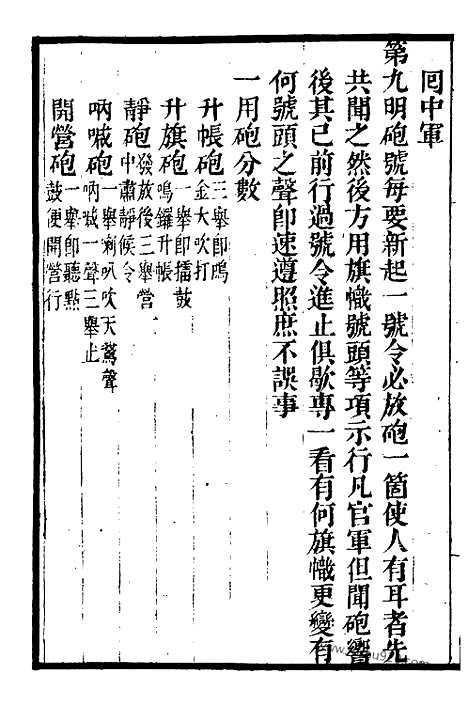 囘中軍
第九明砲號每要新起一號令必放砲一箇使人有耳者先
共聞之然後方用旗幟號頭等項示行凡官軍但聞砲響
後其已前行過號令進止俱歇專一看有何旗幟更變有
何號頭之聲卽速遵照庶不誤事
一用砲分數
升帳砲三舉卽鳴
金大吹打
升旗砲一舉卽擂鼓
鳴鑼升帳
靜砲發放後三舉營
中肅靜候令
吶喊砲一舉喇叭吹天鵞聲
吶喊一聲三舉止
開營砲一舉卽聽點
鼓便開營行